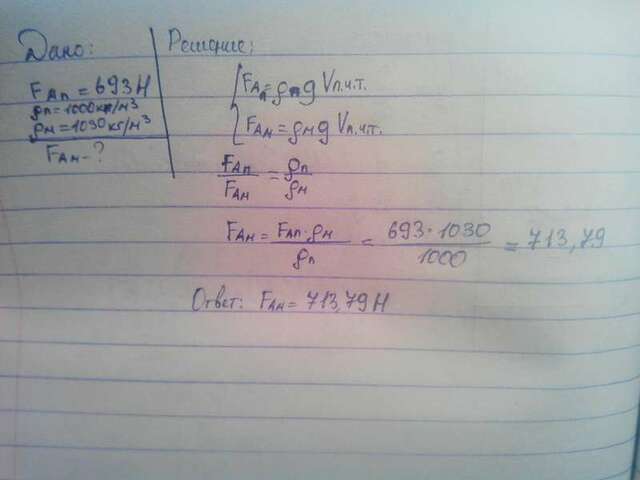 Дано:
FАп = 693Н
ρп = 1000кг/м³
ρм = 1030кг/м³
FАм - ?
Решение:
FАп = ρпg Vп.ч.т.
FАм = ρмg Vп.ч.т.
FАп / FАм = ρп / ρм
FАм = FАп · ρм / ρп = 693 · 1030 / 1000 = 713,79
Ответ: FАм = 713,79 Н